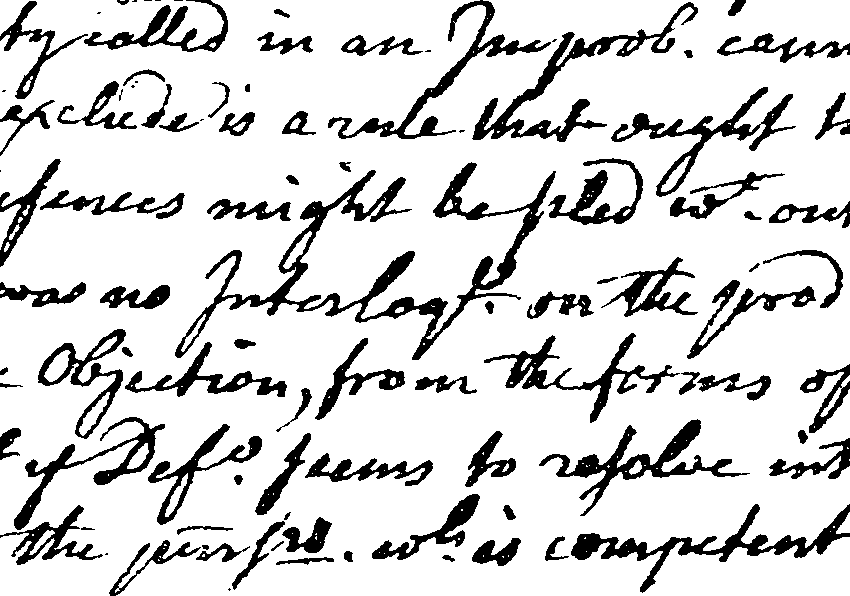 ty called in an Improb. cann
exclude is a rule that ought t
efences might be pled wt. out
was no Interloqr. on the prod
Objection, from the forms of
if Defr. seems to resolve int
the purſrs. wh. is competent